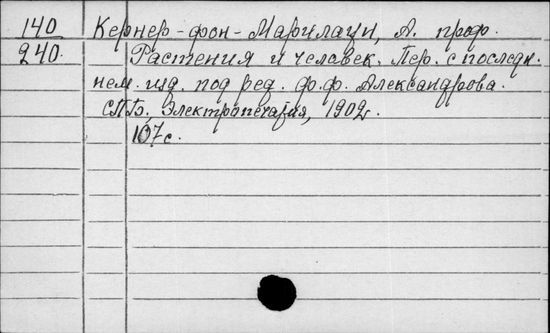 140 Кернер-фон-Марилаун, А. проф.
240. Растения и человек. Пер. с последн.
нем. изд. под ред. Ф.Ф. Александрова.
СПБ, Электропечатня, 1902.
107 с.